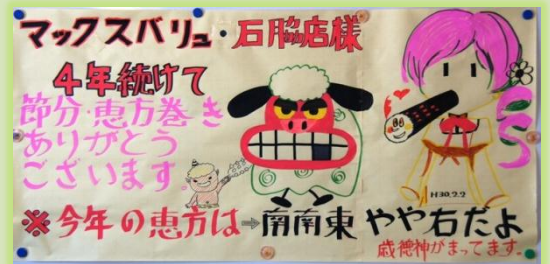 マックスバリュ・石脇店様
4年続けて
節分・恵方巻き
ありがとう
ございます。
H30.2.2
※今年の恵方は→南南東 やや右だよ
歳徳神がまってます。